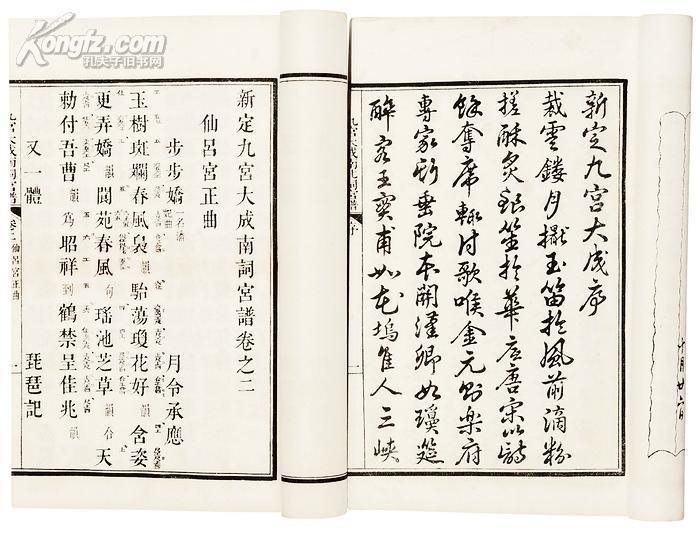 Kongfz.com
孔夫子旧书网
十月廿六日
新定九宮大成序
裁雲鏤月擫玉笛於風前滴粉
搓酥炙銀笙於華底唐宋以詩
餘奪席輒付歌喉金元則樂府
專家 垂院本關漢卿如瓊筵
醉客王實甫如花塢佳人三峽
序 一
新定九宮大成南詞宮譜卷之二
仙呂宮正曲
步步嬌 一名潘妃曲 月令承應
玉樹斑斕春風裊韻駘蕩瓊花好韻含姿
更弄嬌韻閬苑春風句瑤池芝草韻合天
勅付吾曹韻為昭祥到鶴禁呈佳兆韻
又一體 琵琶記
詞宮譜 卷二仙呂宮正曲 一